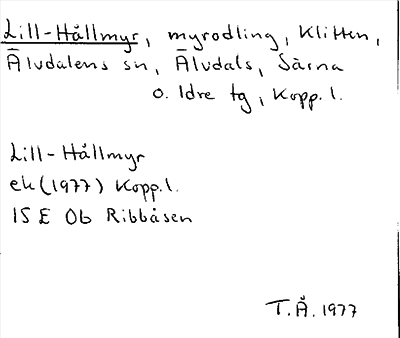 Lill-Hållmyr, myrodling, Klitten,
Älvdalens sn, Älvdals, Särna
o. Idre tg, Kopp. l.
Lill-Hållmyr
ek (1977) Kopp. l.
15 E Ob Ribbåsen
T.Å. 1977